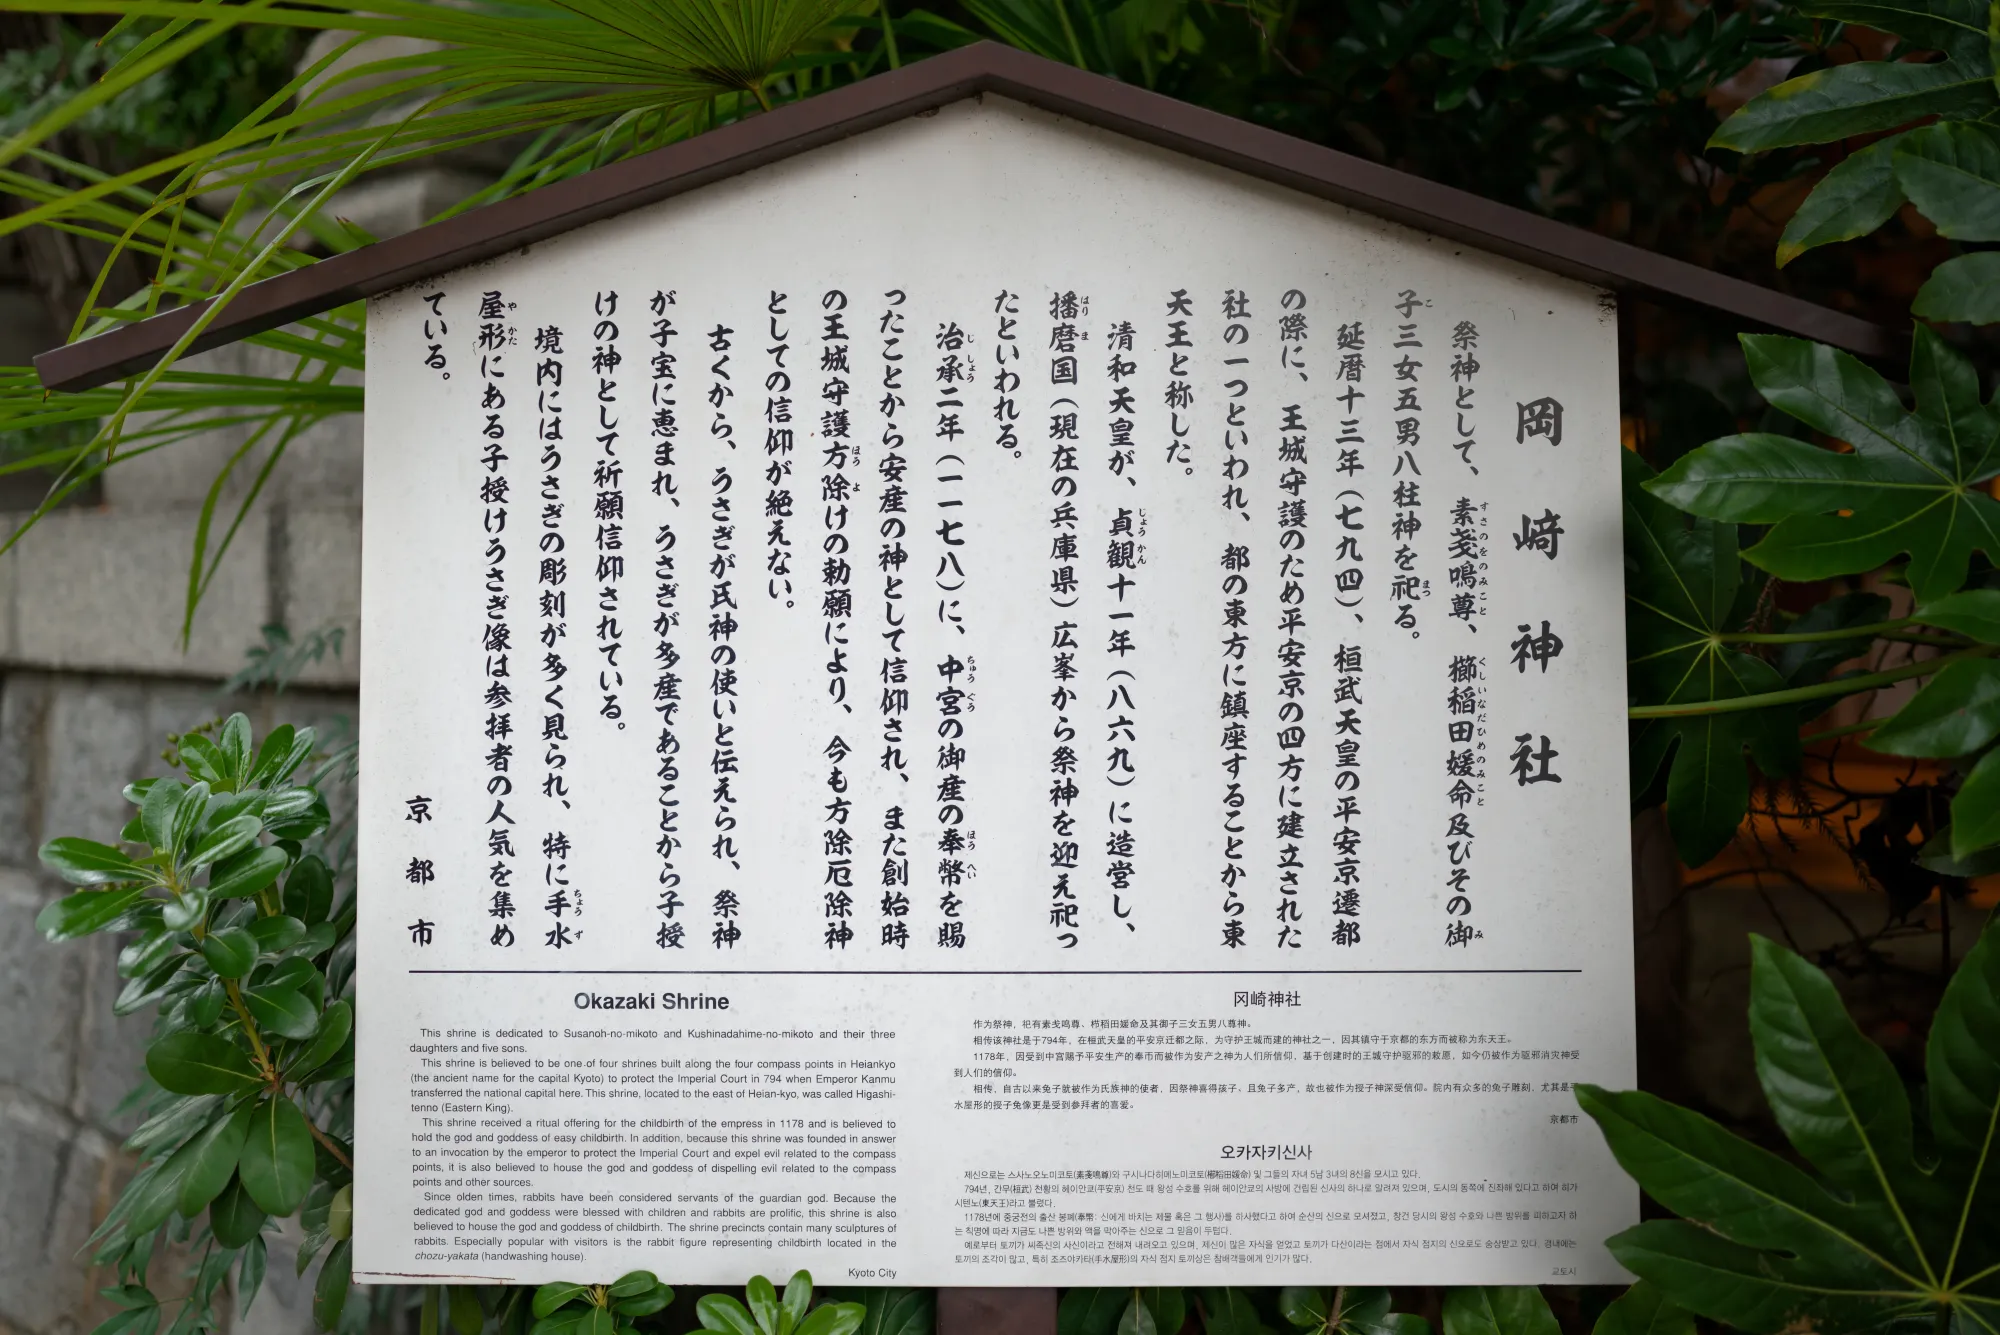 岡﨑神社
祭神として、素戔嗚尊、櫛稲田媛命及びその御
子三女五男八柱神を祀る。
延暦十三年（七九四）、桓武天皇の平安京遷都
の際に、王城守護のため平安京の四方に建立された
社の一つといわれ、都の東方に鎮座することから東
天王と称した。
清和天皇が、貞観十一年（八六九）に造営し、
播磨国（現在の兵庫県）広峯から祭神を迎え祀っ
たといわれる。
治承二年（一一七八）に、中宮の御産の奉幣を賜
ったことから安産の神として信仰され、また創始時
の王城守護方除けの勅願により、今も方除厄除神
としての信仰が絶えない。
古くから、うさぎが氏神の使いと伝えられ、祭神
が子宝に恵まれ、うさぎが多産であることから子授
けの神として祈願信仰されている。
境内にはうさぎの彫刻が多く見られ、特に手水
屋形にある子授けうさぎ像は参拝者の人気を集め
ている。
京都市
Okazaki Shrine
This shrine is dedicated to Susanoh-no-mikoto and Kushinadahime-no-mikoto and their three
daughters and five sons.
This shrine is believed to be one of four shrines built along the four compass points in Heiankyo
(the ancient name for the capital Kyoto) to protect the Imperial Court in 794 when Emperor Kanmu
transferred the national capital here. This shrine, located to the east of Heian-kyo, was called Higashi-
tenno (Eastern King).
This shrine received a ritual offering for the childbirth of the empress in 1178 and is believed to
hold the god and goddess of easy childbirth. In addition, because this shrine was founded in answer
to an invocation by the emperor to protect the Imperial Court and expel evil related to the compass
points, it is also believed to house the god and goddess of dispelling evil related to the compass
points and other sources.
Since olden times, rabbits have been considered servants of the guardian god. Because the
dedicated god and goddess were blessed with children and rabbits are prolific, this shrine is also
believed to house the god and goddess of childbirth. The shrine precincts contain many sculptures of
rabbits. Especially popular with visitors is the rabbit figure representing childbirth located in the
chozu-yakata (handwashing house).
Kyoto City
冈崎神社
作为祭神，祀有素戋鸣尊、栉稻田媛命及其御子三女五男八尊神。
相传该神社是于794年，在桓武天皇的平安京迁都之际，为守护王城而建的神社之一，因其镇守于京都的东方而被称为东天王。
1178年，因受到中宫赐予平安生产的奉币而被作为安产之神为人们所信仰，基于创建时的王城守护驱邪的敕愿，如今仍被作为驱邪消灾神受
到人们的信仰。
相传，自古以来兔子就被作为氏族神的使者，因祭神喜得孩子、且兔子多产，故也被作为授子神深受信仰。院内有众多的兔子雕刻，尤其是手
水屋形的授子兔像更是受到参拜者的喜爱。
京都市
오카자키신사
제신으로는 스사노오노미코토(素戔嗚尊)와 구시나다히메노미코토(櫛稲田媛命) 및 그들의 자녀 5남 3녀의 8신을 모시고 있다.
794년, 간무(桓武) 천황의 헤이안쿄(平安京) 천도 때 왕성 수호를 위해 헤이안쿄의 사방에 건립된 신사의 하나로 알려져 있으며, 도시의 동쪽에 진좌해 있다고 하여 히가
시텐노(東天王)라고 불렸다.
1178년에 중궁전의 출산 봉폐(奉幣: 신에게 바치는 제물 혹은 그 행사)를 하사했다고 하여 순산의 신으로 모셔졌고, 창건 당시의 왕성 수호와 나쁜 방위를 피하고자 하
는 칙명에 따라 지금도 나쁜 방위와 액을 막아주는 신으로 그 믿음이 두텁다.
예로부터 토끼가 씨족신의 사신이라고 전해져 내려오고 있으며, 제신이 많은 자식을 얻었고 토끼가 다산이라는 점에서 자식 점지의 신으로도 숭상받고 있다. 경내에는
토끼의 조각이 많고, 특히 조즈야카타(手水屋形)의 자식 점지 토끼상은 참배객들에게 인기가 많다.
교토시